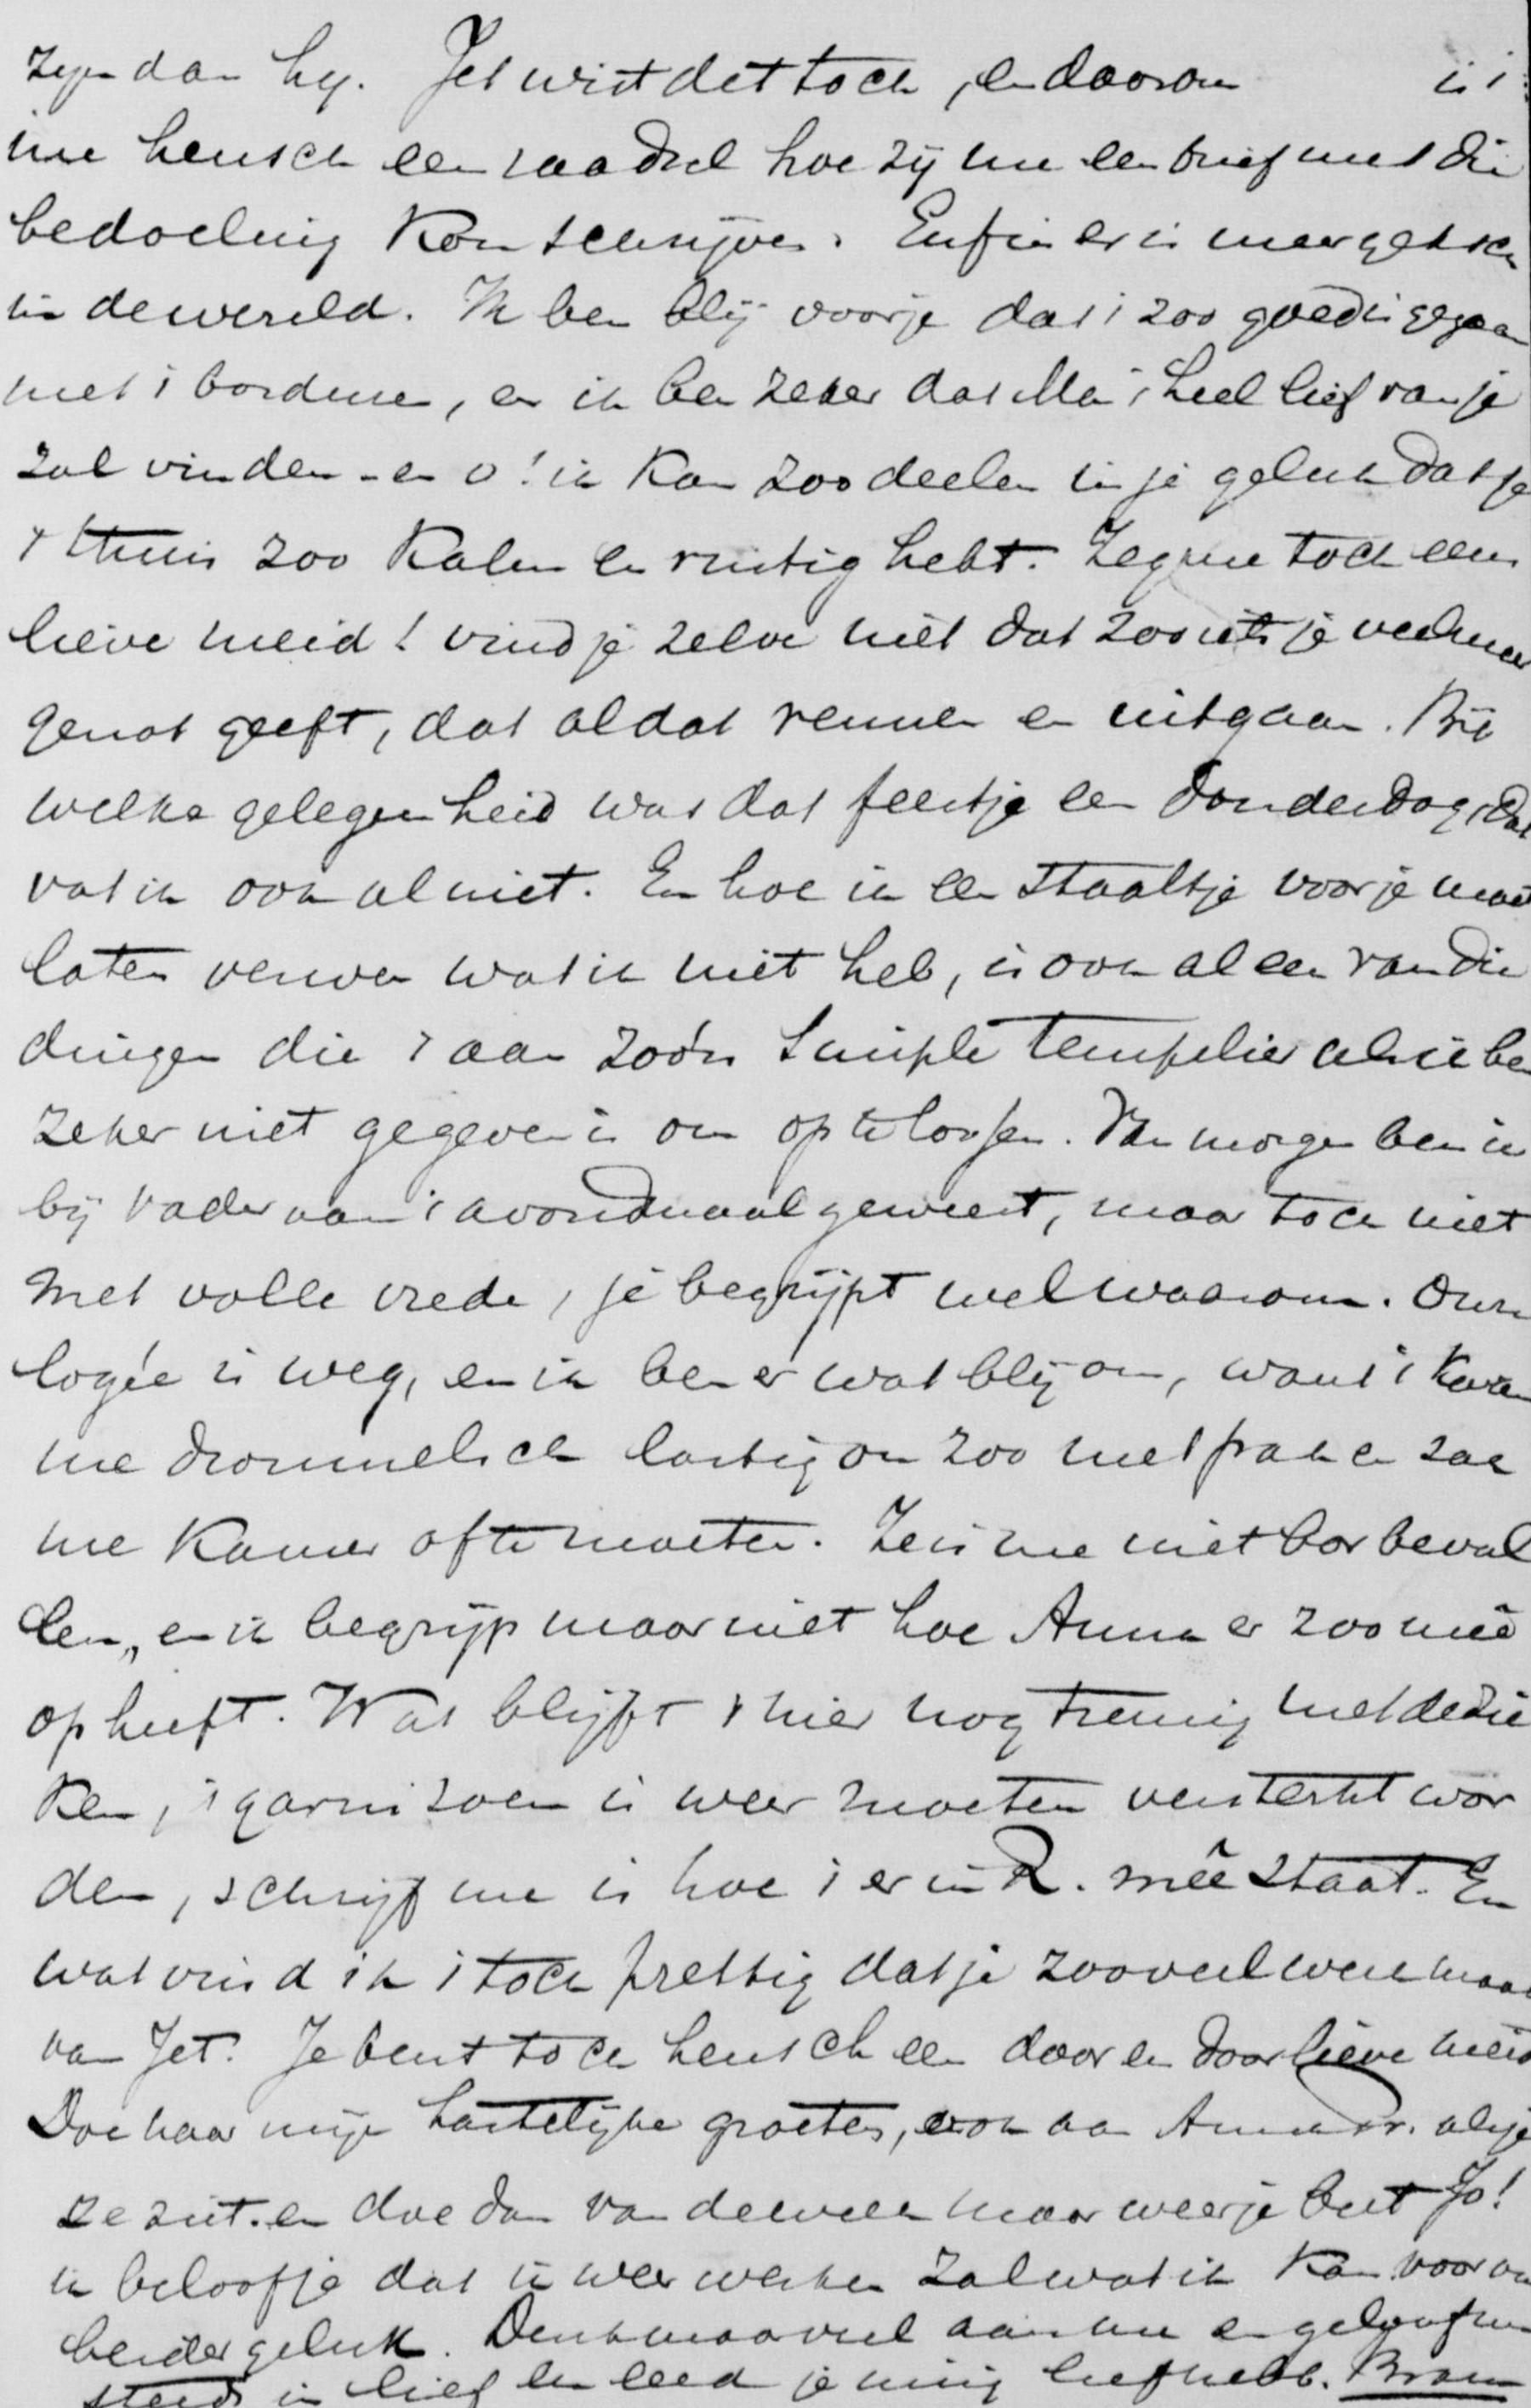 zijn dan hij. Jet wist dat toch, en daarom is 't
me heusch een raadsel hoe zij me een brief met die
bedoeling kon schrijven. Enfin er is meer geks
in de wereld. Ik ben blij voor je dat 't zoo goed is gegaan
met 't borduren, en ik ben zeker dat Ma 't heel lief van je
zal vinden - en o! ik kan zoo deelen in je geluk dat je
't thuis zoo kalm en rustig hebt. Zeg me toch eens
lieve meid! vind je zelve niet dat zoo iets je veel meer
genot geeft, dat al dat rennen en uitgaan. Bij
welke gelegenheid was dat feestje een Donderdag, dat
vat ik ook al niet. En hoe ik een staaltje voor je moet
laten verven wat ik niet heb, is ook al een van die
dingen die 't aan zoo'n simple tempelier als ik ben
zeker niet gegeven is om op te lossen. Van morgen ben ik
bij Vader aan 't avondmaal geweest, maar toch niet
met volle vrede, je begrijpt wel waarom. Onze
logée is weg, en ik ben er wat blij om, want 't kwam
me drommelsch lastig om zoo met pak en zak
me kamer af te moeten. Ze is me niet bar beval
len, en ik begrijp maar niet hoe Anna er zoo meê
op heeft. Wat blijft 't hier nog treurig met de zie
ken, 't garnizoen is weer moeten versterkt wor
den, schrijf me is hoe 't er in R. meê staat. En
wat vind ik 't toch prettig dat je zooveel werk maakt
van Jet. Je bent toch heusch een door en door lieve meid
Doe haar mijn hartelijke groeten, ook aan Anna v. als je
ze ziet. en doe dan van de week maar weer je best Jo!
ik beloof je dat ik weer werken zal wat ik kan voor ons
beider geluk. Denk maar veel aan me en geloof me
steeds in lief en leed je innig liefhebb. Bram